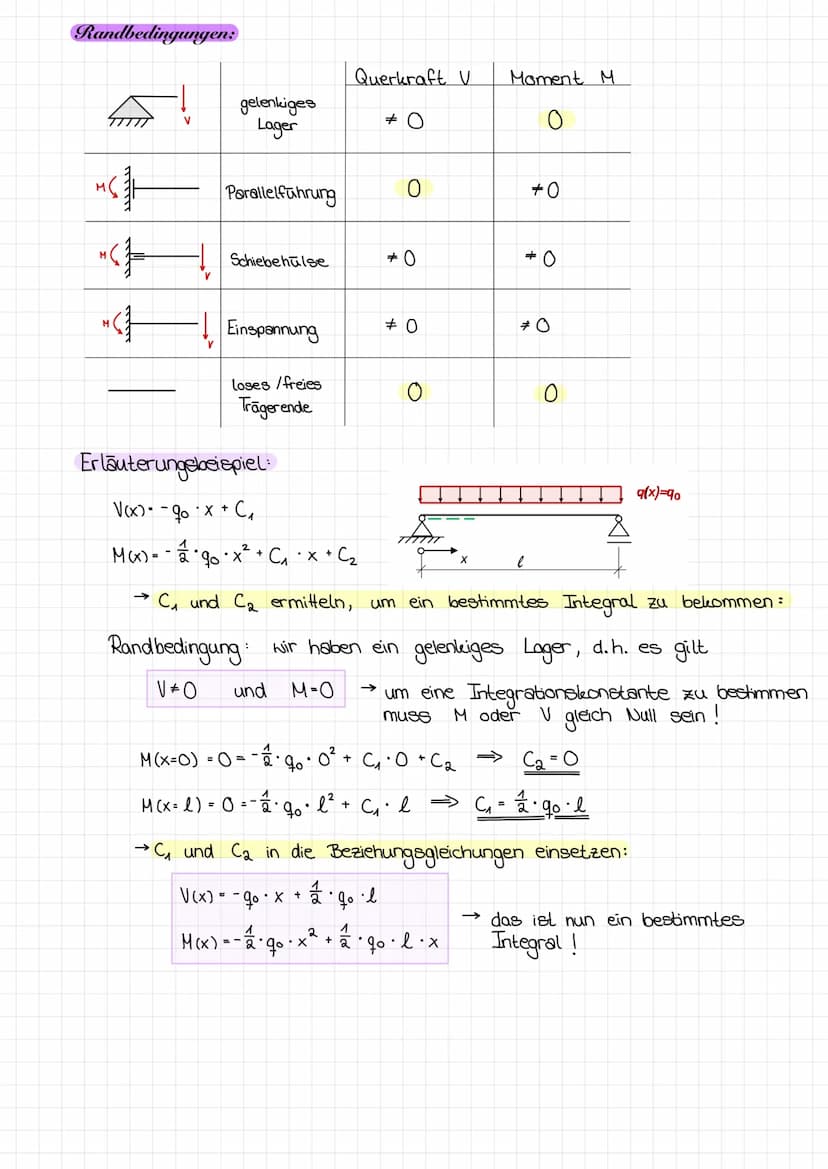 Randbedingungen:
Querkraft V Moment M
gelenkiges
Lager
V
≠ 0 0
M
Parallelführung 0 ≠ 0
M
V
Schiebehülse ≠ 0 ≠ 0
M
V
Einspannung ≠ 0 ≠ 0
loses / freies
Trägerende
0 0
Erläuterungsbeispiel:
q(x)=q₀
V(x) = - q₀ · x + C₁
M(x) = - 1/2 · q₀ · x² + C₁ · x + C₂
x l
→ C₁ und C₂ ermitteln, um ein bestimmtes Integral zu bekommen:
Randbedingung: wir haben ein gelenkiges Lager, d.h. es gilt
V ≠ 0 und M = 0 → um eine Integrationskonstante zu bestimmen
muss M oder V gleich Null sein!
M(x=0) = 0 = - 1/2 · q₀ · 0² + C₁ · 0 + C₂ ⇒ C₂ = 0
M(x=l) = 0 = - 1/2 · q₀ · l² + C₁ · l ⇒ C₁ = 1/2 · q₀ · l
→ C₁ und C₂ in die Beziehungsgleichungen einsetzen:
V(x) = - q₀ · x + 1/2 · q₀ · l
M(x) = - 1/2 · q₀ · x² + 1/2 · q₀ · l · x
→ das ist nun ein bestimmtes
Integral!